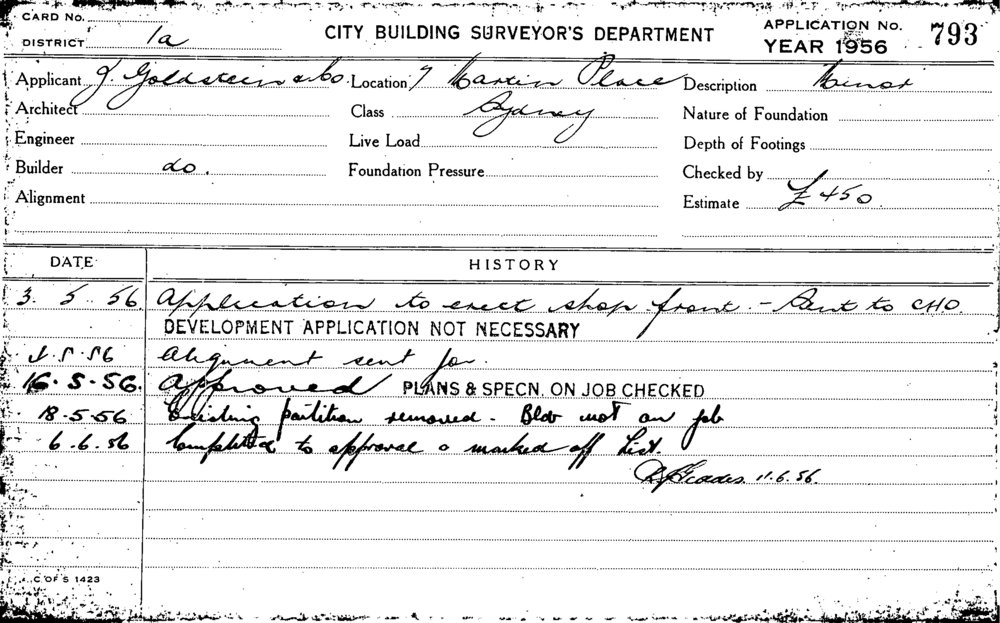 CARD No.
DISTRICT 1a
CITY BUILDING SURVEYOR'S DEPARTMENT
APPLICATION No. 793
YEAR 1956
Applicant J. Goldstein & Co. Location 7 Martin Place Description Minor
Architect Class Sydney Nature of Foundation
Engineer Live Load Depth of Footings
Builder do. Foundation Pressure Checked by
Alignment Estimate £450
DATE HISTORY
3. 5. 56 Application to erect shop front. - Sent to CHO.
DEVELOPMENT APPLICATION NOT NECESSARY
5. 56 Alignment sent for.
16. 5. 56. Approved PLANS & SPECN. ON JOB CHECKED
18-5-56 Existing partition removed. Bldr not on job
6. 6. 56 Completed to approval & marked off list.
11. 6. 56.
C OF S 1423